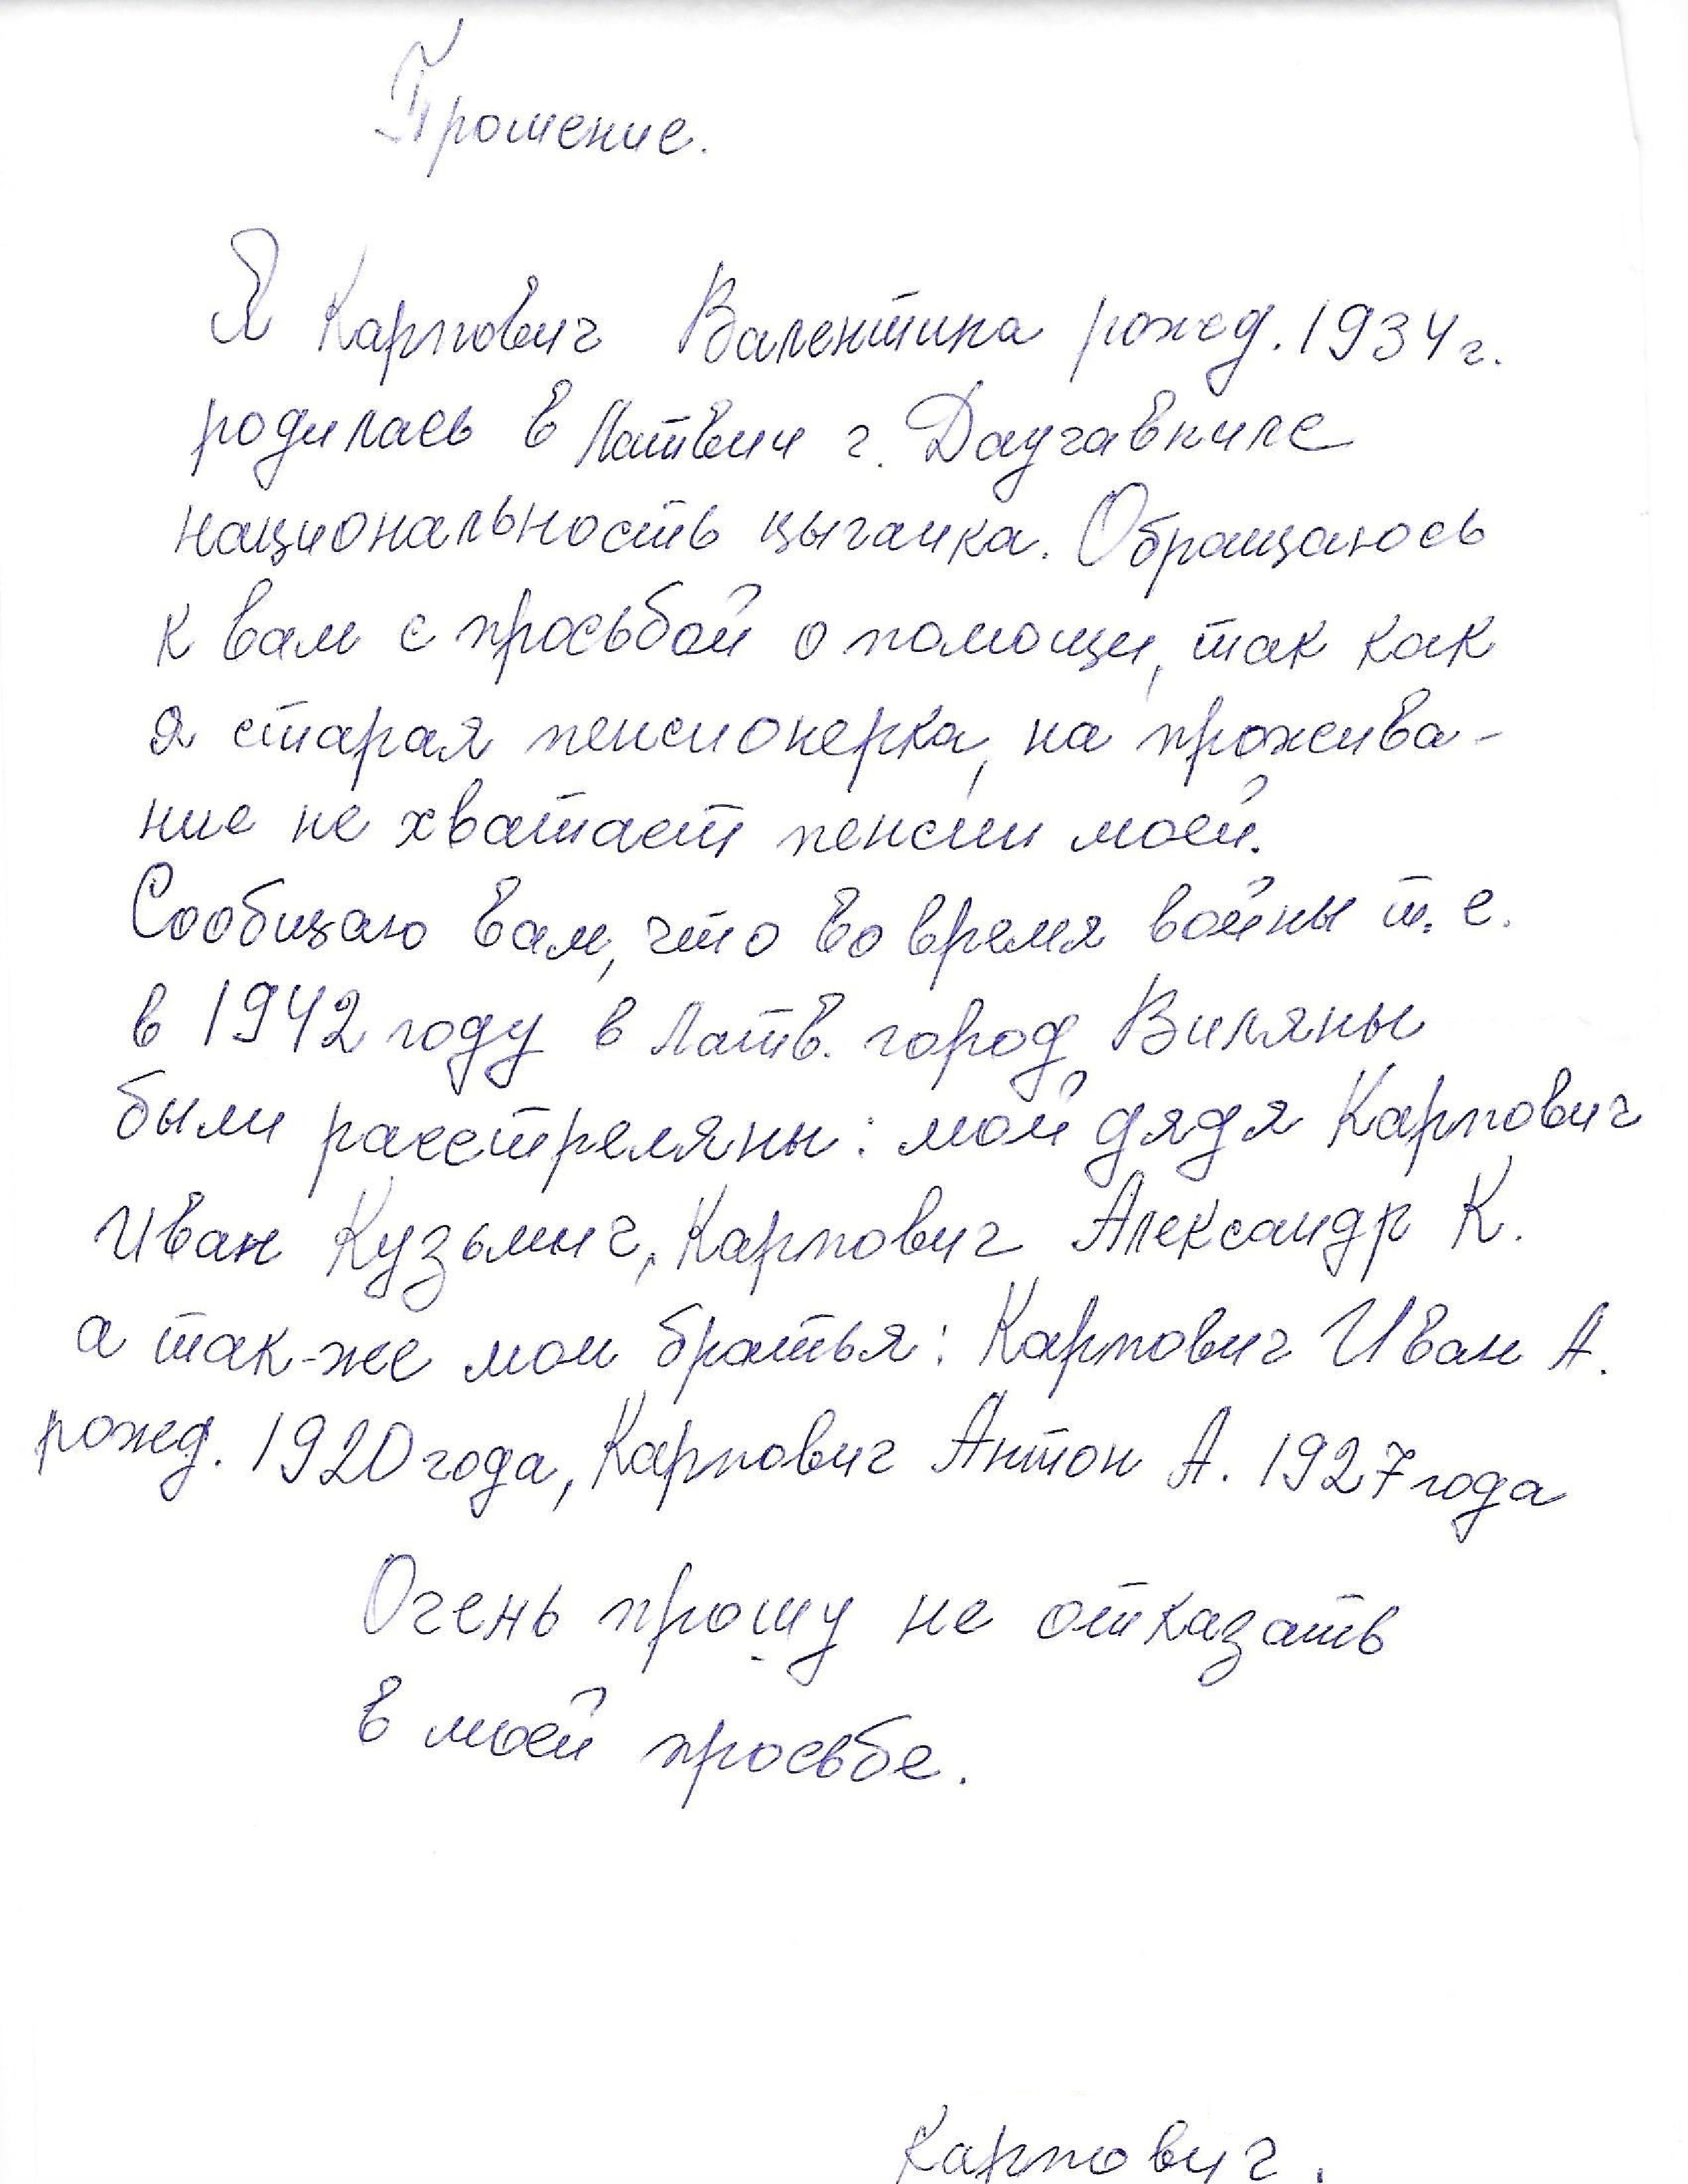 Прошение.
Я Карпович Валентина рожед. 1934 г.
родилась в Латвии г. Даугавпилс
национальность цыганка. Обращаюсь
к вам с просьбой о помощи, так как
я старая пенсионерка, на прожива-
ние не хватает пенсии моей.
Сообщаю вам, что во время войны т. е.
в 1942 году в Латв. город Виляны
были расстреляны: мой дядя Карпович
Иван Кузьмич, Карпович Александр К.
а так-же мои братья: Карпович Иван А.
рожед. 1920 года, Карпович Антон А. 1927 года
Очень прошу не отказать
в моей просьбе.
Карпович.